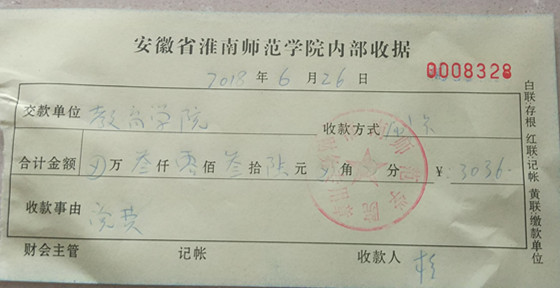 安徽省淮南师范学院内部收据
2018年6月26日 0008328
交款单位 教育学院 收款方式
合计金额 万叁仟零佰叁拾陆元 角 分 ¥:3036.
收款事由 资费
财会主管 记帐 收款人
白联存根 红联记帐 黄联缴款单位